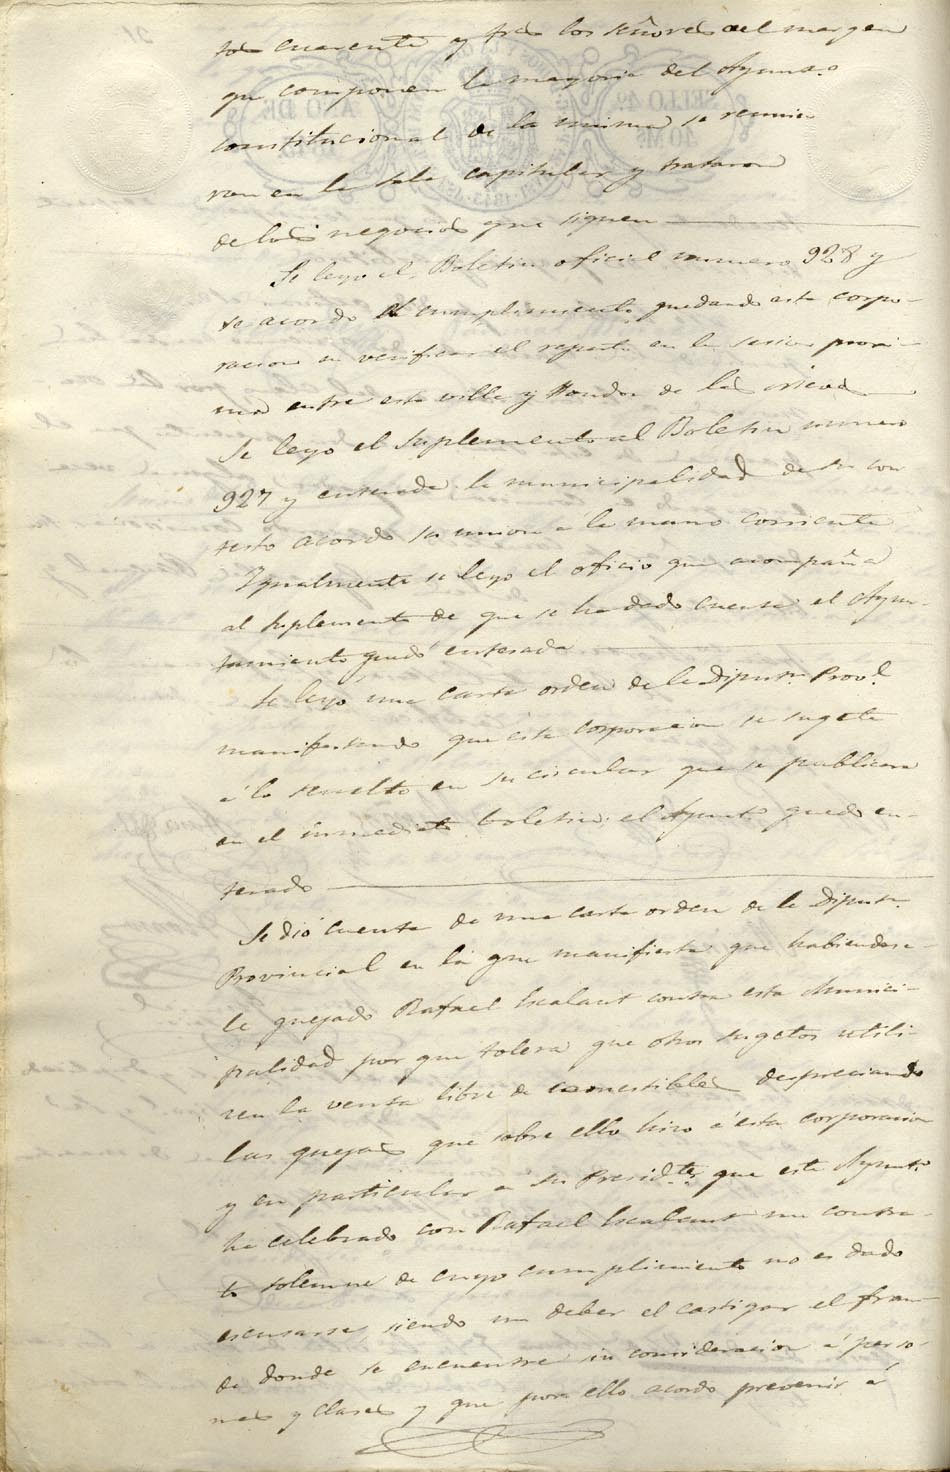 tos cuarenta y tres los señores del margen
que componen la mayoria del Ayunto.
constitucional de la misma se reunie
ron en la sala capitular y trataron
de los negocios que siguen
Se leyo el Boletin oficial numero 928 y
se acordo el cumplimiento quedando esta corpo-
racion en verificar el reparto en la sesion proxi-
ma entre esta villa y Hondon de las nieves
Se leyo el Suplemento al Boletin numero
927 y enterada la municipalidad de su con
testo acordo su union a la mano corriente
Igualmente se leyo el oficio que acompaña
al suplemento de que se ha dado cuenta el Ayun-
tamiento quedó enterado
Se leyó una carta orden de la Diputn. Provl.
manifestando que esta corporacion se sugete
á lo resuelto en su circular que se publicara
en el inmediato boletin: el Ayunto quedo en-
terado
Se dió cuenta de una carta orden de la Diputn.
Provincial en la que manifiesta que habiendose-
le quejado Rafael Escalant contra esta Munici-
palidad por que tolera que otros sugetos utili-
cen la venta libre de comestibles despreciando
las quejas que sobre ello hizo á esta corporacion
y en particular á su Presidte. que este Ayunto.
ha celebrado con Rafael Escalant un contra-
to solemne de cuyo cumplimiento no es dado
escusarse, siendo un deber el castigar el frau-
de donde se encuentre sin consideracion á perso-
nas y clases y que por ello acordo prevenir á